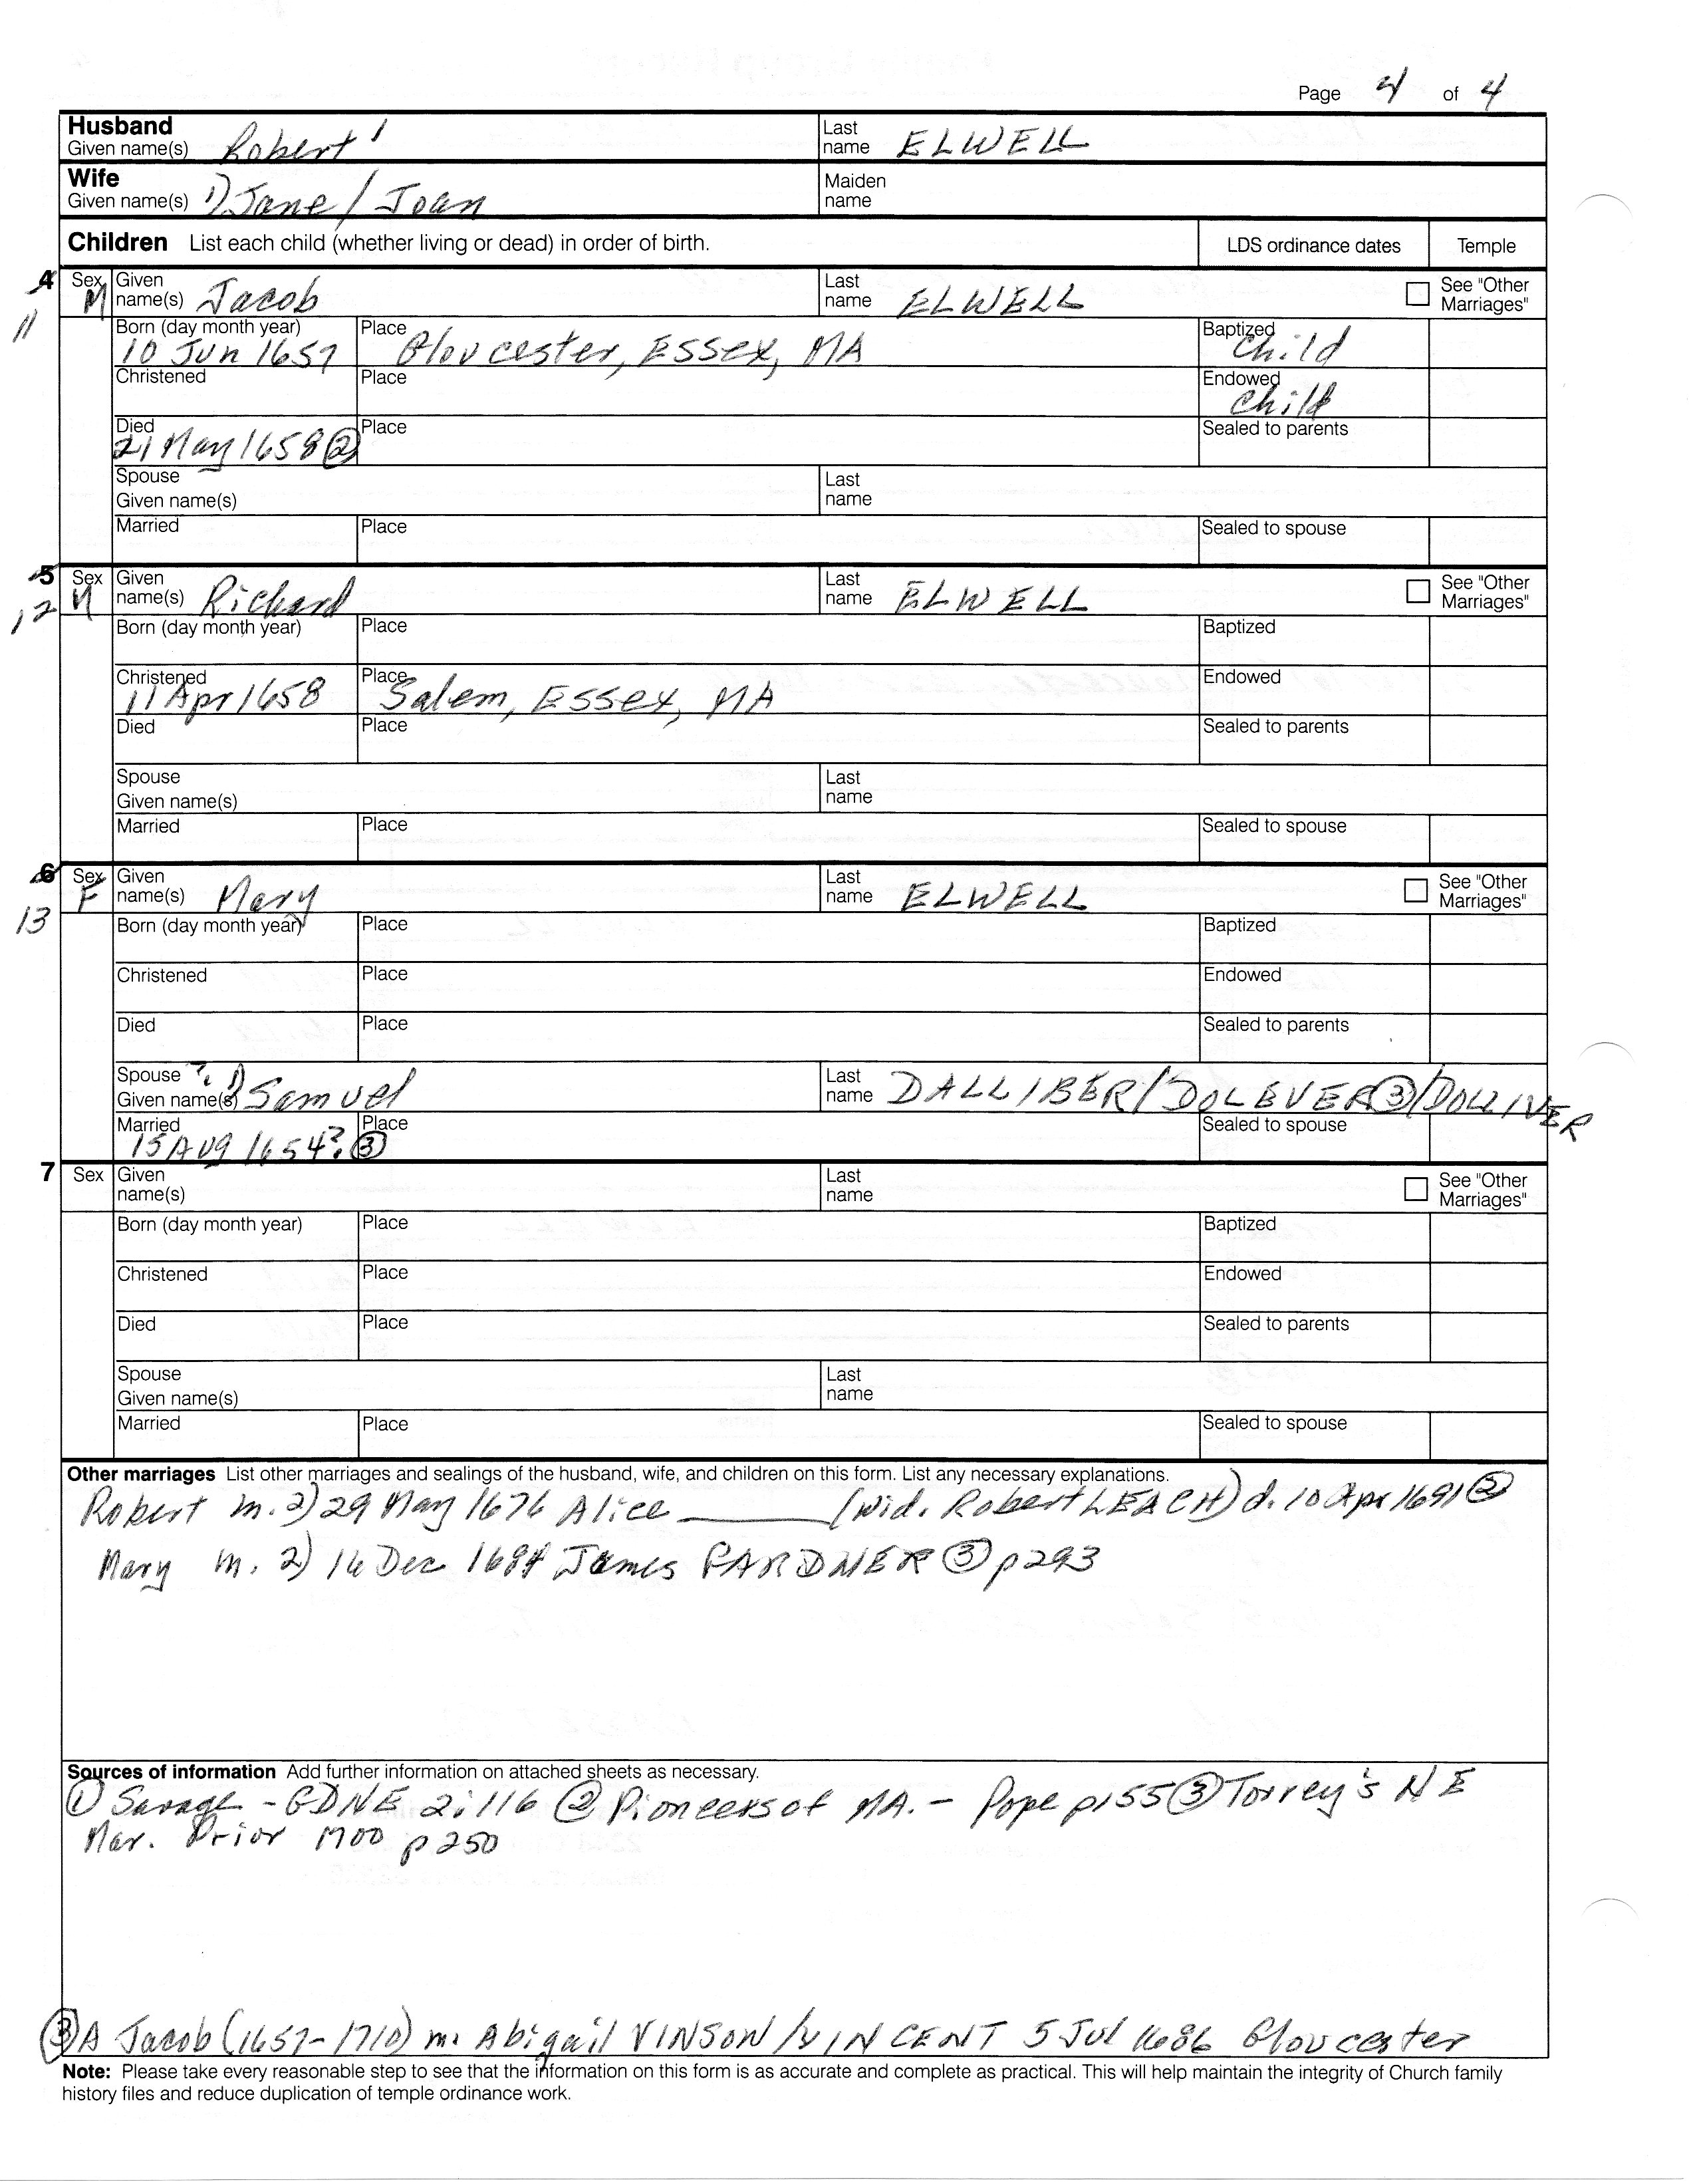 Page 4 of 4
Husband
Given name(s) Robert¹ Last name ELWELL
Wife
Given name(s) 1) Jane / Joan Maiden name
Children List each child (whether living or dead) in order of birth. LDS ordinance dates Temple
4 Sex M Given name(s) Jacob Last name ELWELL See "Other Marriages"
11
Born (day month year) 10 Jun 1657 Place Gloucester, Essex, MA Baptized Child
Christened Place Endowed Child
Died 21 May 1658 ② Place Sealed to parents
Spouse Given name(s) Last name
Married Place Sealed to spouse
5 Sex M Given name(s) Richard Last name ELWELL See "Other Marriages"
12
Born (day month year) Place Baptized
Christened 11 Apr 1658 Place Salem, Essex, MA Endowed
Died Place Sealed to parents
Spouse Given name(s) Last name
Married Place Sealed to spouse
6 Sex F Given name(s) Mary Last name ELWELL See "Other Marriages"
13
Born (day month year) Place Baptized
Christened Place Endowed
Died Place Sealed to parents
Spouse Given name(s) 1) Samuel Last name DALLIBER/DOLEVER ③/DOLLIVER
Married 15 Aug 1654? ③ Place Sealed to spouse
7 Sex Given name(s) Last name See "Other Marriages"
Born (day month year) Place Baptized
Christened Place Endowed
Died Place Sealed to parents
Spouse Given name(s) Last name
Married Place Sealed to spouse
Other marriages List other marriages and sealings of the husband, wife, and children on this form. List any necessary explanations.
Robert m. 2) 29 May 1676 Alice ______ (wid. Robert LEACH) d. 10 Apr 1691 ②
Mary m. 2) 16 Dec 1684 James GARDNER ③ p293
Sources of information Add further information on attached sheets as necessary.
① Savage - GDNE 2:116 ② Pioneers of MA. - Pope p155 ③ Torrey's NE
Mar. Prior 1700 p250
③A Jacob (1657-1710) m. Abigail VINSON/VINCENT 5 Jul 1686 Gloucester
Note: Please take every reasonable step to see that the information on this form is as accurate and complete as practical. This will help maintain the integrity of Church family
history files and reduce duplication of temple ordinance work.